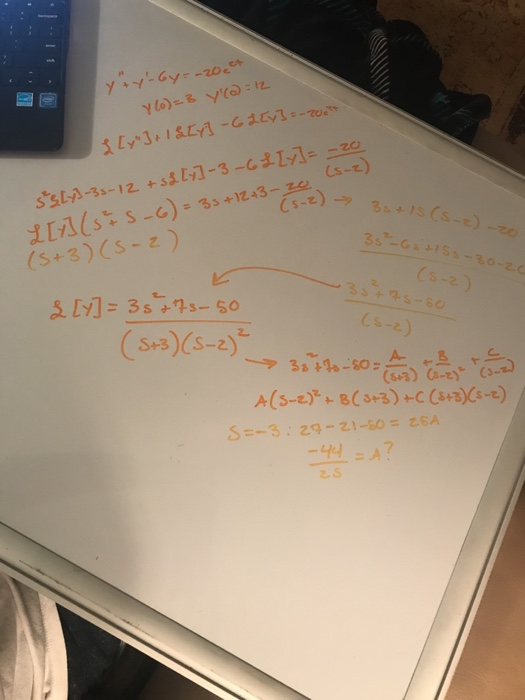 y'' + y' - 6y = -20e^2t
y(0)=3 y'(0)=12
ℒ[y''] + 1ℒ[y] - 6ℒ[y] = -20e^2t
s²ℒ[y] - 3s - 12 + sℒ[y] - 3 - 6ℒ[y] = -20/(s-2)
ℒ[y](s² + s - 6) = 3s + 12 + 3 - 20/(s-2) →
(s+3)(s-2)
3s + 15(s-2) - 20
3s² - 6s + 15s - 30 - 20/(s-2)
3s² + 7s - 50/(s-2)
ℒ[y] = 3s² + 7s - 50/(s+3)(s-2)²
→ 3s² + 7s - 50 = A/(s+3) + B/(s-2)² + C/(s-2)
A(s-2)² + B(s+3) + C(s+3)(s-2)
s = -3 : 27 - 21 - 50 = 25A
-44/25 = A?